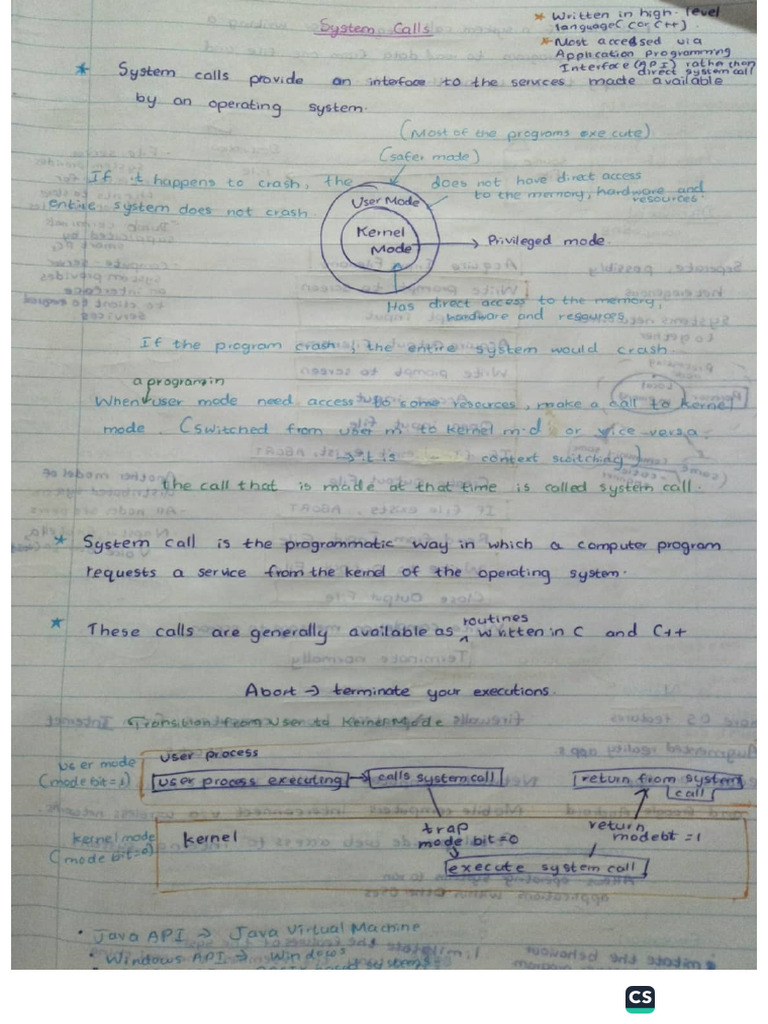 System Calls
* Written in high-level
language (C or C++).
* Most accessed via
Application programming
Interface (API) rather than
direct system call
* System calls provide an interface to the services made available
by an operating system.
(Most of the programs execute)
(safer mode)
If it happens to crash, the
entire system does not crash.
does not have direct access
to the memory, hardware and
resources.
User Mode
Kernel
Mode
Privileged mode.
Has direct access to the memory,
hardware and resources
If the program crash, the entire system would crash
a program in
When user mode need access to some resources, make a call to Kernel
mode. (switched from user m. to kernel m.d or vice versa.
→ it is context switching)
the call that is made at that time is called system call.
* System call is the programmatic way in which a computer program
requests a service from the kernel of the operating system.
routines
* These calls are generally available as ^ written in C and C++
Abort → terminate your executions.
Transition from User to Kernel Mode
user mode
(mode bit=1)
user process
user process executing
calls system call
return from system
call
kernel mode
(mode bit=0)
kernel
trap
mode bit=0
return
modebt =1
execute system call
• Java API → Java Virtual Machine
• Windows API → Windows
CS